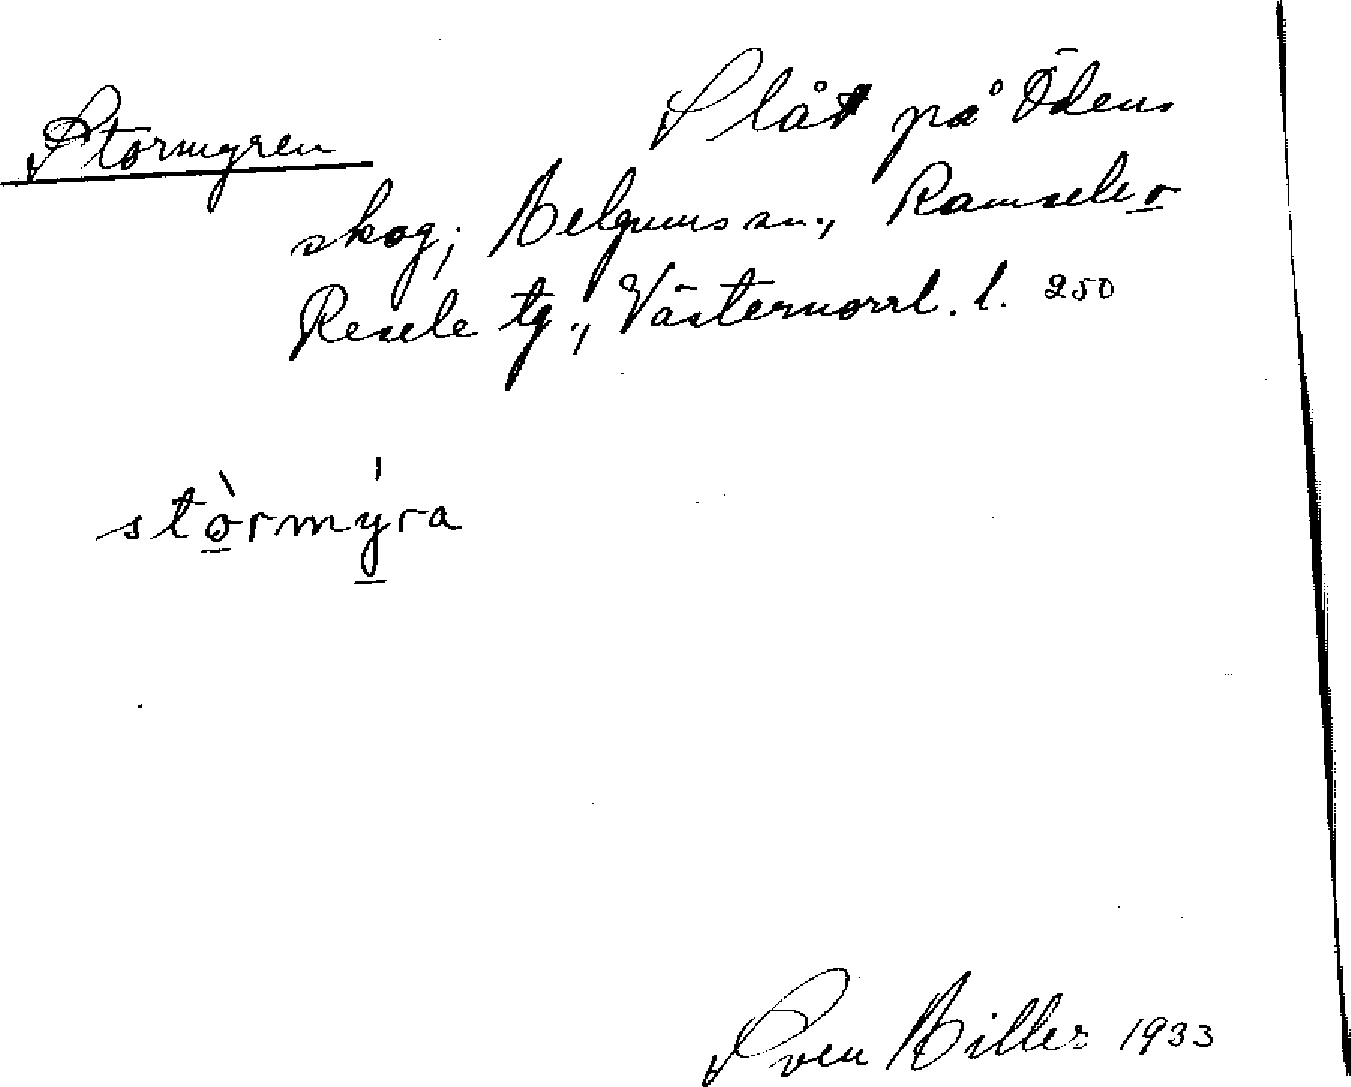 Stormyren
Slåt på Ödens
skog, Helgums sn., Ramsele o
Resele tg., Västernorrl. l. 250
stòrmýra
Sven Hiller 1933